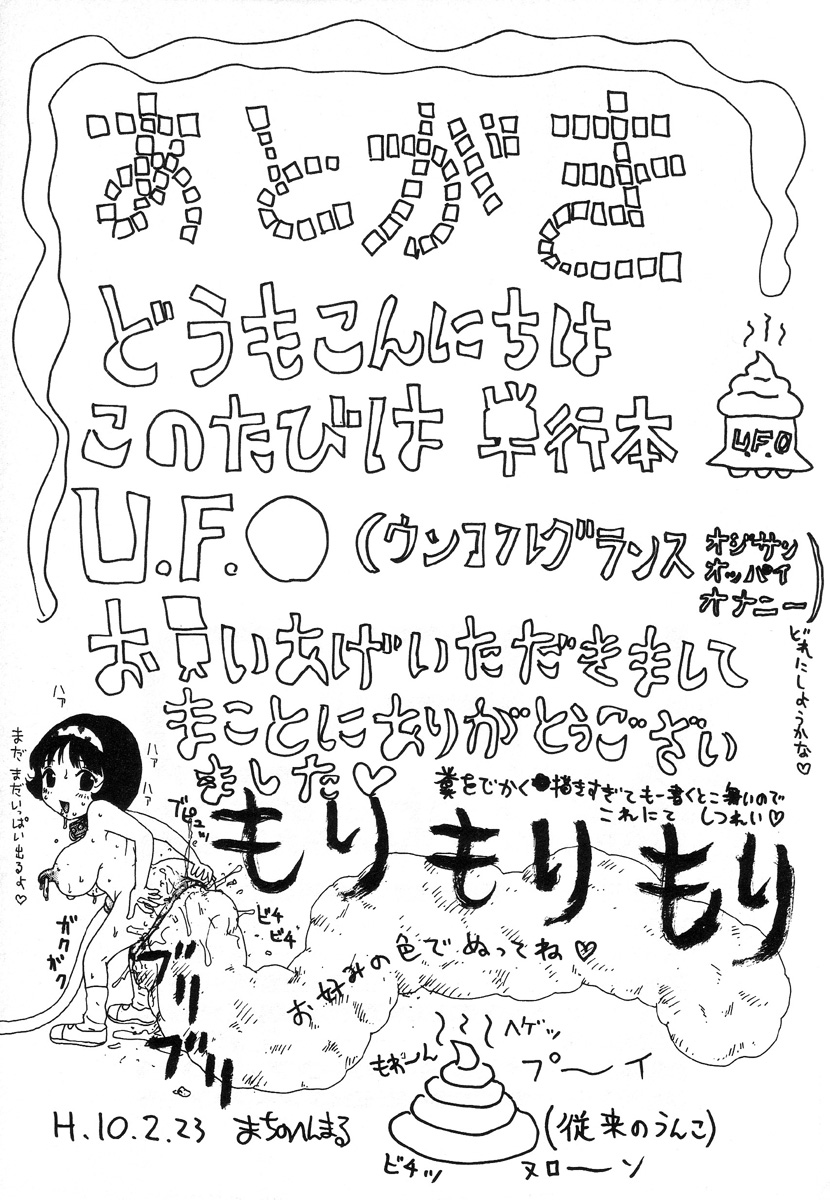 あとがき
どうもこんにちは
このたびは単行本
U.F.O
U.F.O（ウンコフルグランス オジサン
オッパイ
オナニー）
どれにしようかな♡
お買いあげいただきまして
まことにありがとうござい
ました♡
糞をでかく描きすぎてもー書くとこ無いので
これにて しつれい♡
ハァ
ハァ
ハァ
まだまだいっぱい出るよ♡
ブピュッ
もり もり もり
ビチ
ビチ
ガク
ガク
ブリ
ブリ
お好みの色でぬってね♡
ヘゲッ
もわーん
プ〜イ
H.10.2.23 まちのいんまる
（従来のうんこ）
ビチッ
ヌロ〜ン